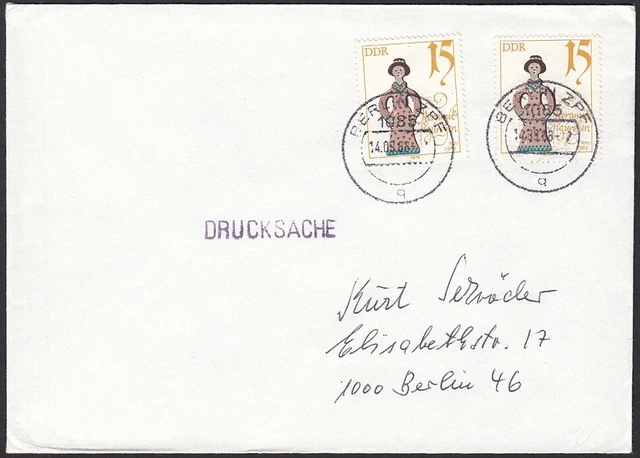 DDR 15
DDR 15
BERLIN ZPF
1085
14.05.86
q
BERLIN ZPF
1085
q
DRUCKSACHE
Kurt Schröder
Elisabethstr. 17
1000 Berlin 46